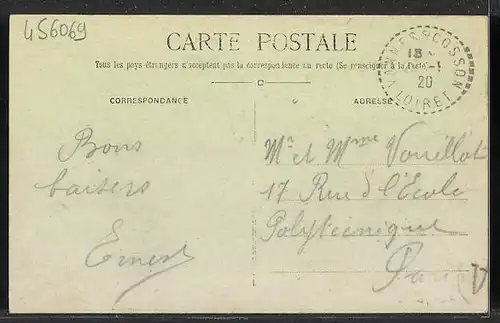 456069
CARTE POSTALE
Tous les pays étrangers n'acceptent pas la correspondance au recto (Se renseigner à la Poste)
VANNES-S-COSSON
18
20
LOIRET
CORRESPONDANCE
ADRESSE
Bons
baisers
Ernest
Mr et Mme Vouillot
17 Rue d l'Ecole
Polytecnique
Paris V